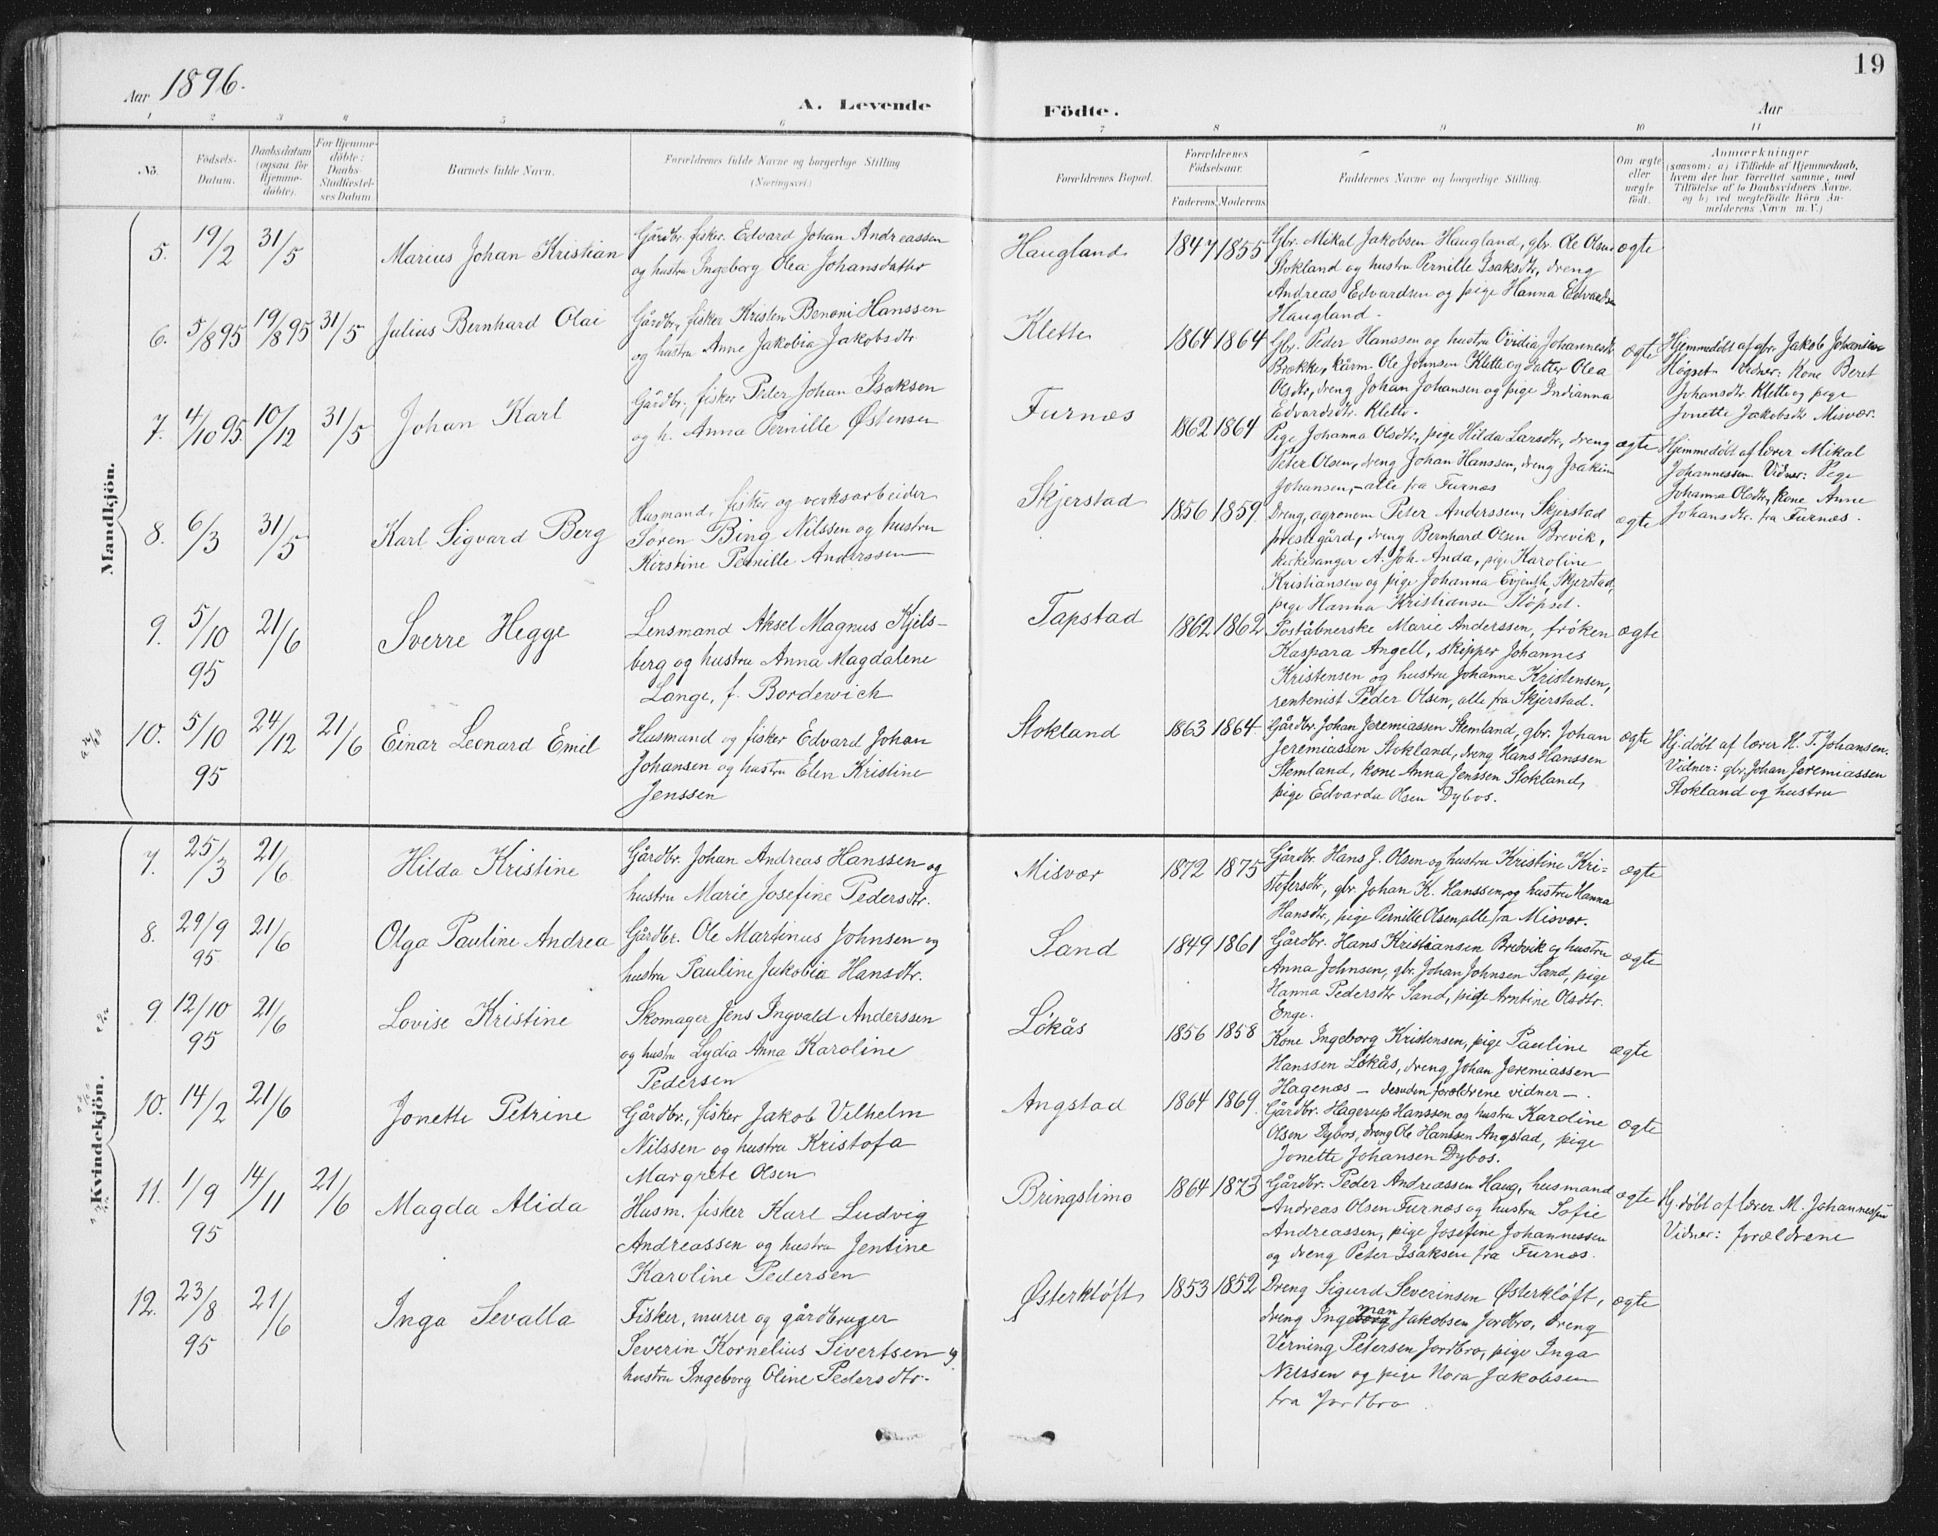 Aar 1896.
A. Levende
Födte.
Aar
19
1 2 3 4 5 6 7 8 9 10 11
No.
Födsels-Datum.
Daabsdatum (ogsaa for Hjemme-döbte).
For Hjemme-döbte: Daabs-Stadfæstel-ses Datum
Barnets fulde Navn.
Forældrenes fulde Navne og borgerlige Stilling (Næringsvei)
Forældrenes Bopæl.
Forældrenes Födselsaar.
Faderens. Moderens.
Faddernes Navne og borgerlige Stilling.
Om ægte eller uægte födt.
Anmærkninger
(saasom: a) i Tilfælde af Hjemmedaab,
hvem der har forrettet samme, med
Tilföielse af to Daabsvidners Navne.
og b) ved uægtefödte Börn An-
melderens Navn m. V.)
Mandkjön.
5. 19/2 31/5 Marius Johan Kristian
Gårdbr. fisker Edvard Johan Andreassen
og hustru Ingeborg Olea Johansdatter
Haugland 1847 1855
Gbr. Mikal Jakobsen Haugland, gbr. Ole Olsen
Stokland og hustru Pernille Isaksdtr, dreng
Andreas Edvardsen og pige Hanna Edvardsen
Haugland.
ægte
6. 5/8 95 19/8 95 31/5 Julius Bernhard Olai
Gårdbr, fisker Kristen Benoni Hanssen
og hustru Anne Jakobia Jakobsdtr
Klette 1864 1864
Gbr. Peder Hanssen og hustru Ovidia Johannesdtr
Brække, kårm. Ole Johnsen Klette og datter Olea
Olsdtr, dreng Johan Johansen og pige Indianna
Edvardsdtr. Klette.
ægte
Hjemmedøbt af gbr. Jakob Johansen
Högset Vidner: kone Beret
Johansdtr Klette og pige
Jonette Jakobsdtr Misvær.
7. 4/10 95. 10/12 31/5 Johan Karl
Gårdbr, fisker Peder Johan Isaksen
og h. Anna Pernille Østensen
Furnæs 1862 1864
Pige Johanna Olsdtr, pige Hilda Larsdtr, dreng
Peter Olsen, dreng Johan Hanssen, dreng Joakim
Johansen, - alle fra Furnæs
ægte
Hjemmedøbt af lærer Mikal
Johannessen Vidner: Pige
Johanna Olsdtr, kone Anne
Johansdtr. fra Furnæs.
8. 6/3 31/5 Karl Sigvard Berg
Husmand, fisker og verksarbeider
Sören Bing Nilssen og hustru
Kirstine Pernille Anderssen
Skjerstad 1856 1859
Dreng, agronom Peter Anderssen, Skjerstad
prestegård, dreng Bernhard Olsen Brevik,
kirkesanger A. Joh. Anda, pige Karoline
Kristiansen og pige Johanna Evjenth, Skjerstad,
pige Hanna Kristiansen Löpset.
ægte
9. 5/10 95 21/6 Sverre Hegge
Lensmand Aksel Magnus Kjels-
berg og hustru Anna Magdalene
Lange, f. Bordewich
Tapstad 1862 1862
Poståbnerske Marie Anderssen, fröken
Kaspara Angell, skipper Johannes
Kristensen og hustru Johanna Kristensen,
rentenist Peder Olsen, alle fra Skjerstad.
ægte
10. 5/10 95 24/12 21/6 Einar Leonard Emil
Husmand og fisker Edvard Johan
Johansen og hustru Elen Kristine
Jenssen
Stokland 1863 1864
Gårdbr. Johan Jeremiassen Stemland, gbr. Johan
Jeremiassen Stokland, dreng Hans Hanssen
Stemland, kone Anna Jenssen Stokland,
pige Edvarda Olsen Dybos.
ægte
Hj. døbt af lærer K. T. Johansen.
Vidner: gbr. Johan Jeremiassen
Stokland og hustru
Kvindekjön.
7. 25/3 21/6 Hilda Kristine
Gårdbr. Johan Andreas Hanssen og
hustru Marie Josefine Pedersdtr.
Misvær 1872 1875
Gårdbr. Hans J. Olsen og hustru Kristine Kri-
stofersdtr, gbr. Johan K. Hanssen, og hustru Hanna
Hansdtr, pige Pernille Olsen, alle fra Misvær.
ægte
8. 29/9 95 21/6 Olga Pauline Andrea
Gårdbr. Ole Martinus Johnsen og
hustru Pauline Jakobia Hansdtr.
Sand 1849 1861
Gårdbr. Hans Kristiansen Bredvik og hustru
Anna Johnsen, gbr. Johan Johnsen Sand, pige
Hanna Pedersdtr Sand, pige Arntine Olsdtr.
Enge.
ægte
9. 12/10 95 21/6 Lovise Kristine
Skomager Jens Ingvald Anderssen
og hustru Lydia Anna Karoline
Pedersen
Løkås 1856 1858
Kone Ingeborg Kristensen, pige Pauline
Hanssen Løkås, dreng Johan Jeremiassen
Hagenæs - desuden forældrene vidner -.
ægte
10. 14/2 21/6 Jonette Petrine
Gårdbr., fisker Jakob Vilhelm
Nilssen og hustru Kristofa
Margrete Olsen
Angstad 1864 1869
Gårdbr. Hagerup Hanssen og hustru Karoline
Olsen Dybos, dreng Ole Hanssen Angstad, pige
Jonette Johansen Dybos.
ægte
11. 1/9 95 14/11 21/6 Magda Alida
Husm. fisker Karl Ludvig
Andreassen og hustru Jentine
Karoline Pedersen
Bringslimo 1864 1873
Gårdbr. Peder Andreassen Haug, husmand
Andreas Olsen Furnæs og hustru Sofie
Andreassen, pige Josefine Johannessen
og dreng Peter Isaksen fra Furnæs.
ægte
Hj. døbt af lærer M. Johannessen
Vidner: forældrene
12. 23/8 95 21/6 Inga Sevalla
Fisker, murer og gårdbruger
Severin Kornelius Sivertsen og
hustru Ingeborg Oline Pedersdtr.
Østerkløft 1853 1852
Dreng Sigurd Severinsen Østerkløft,
dreng Ingeman Jakobsen Jordbro, dreng
Verning Petersen Jordbro, pige Inga
Nilssen og pige Nora Jakobsen
fra Jordbro.
ægte